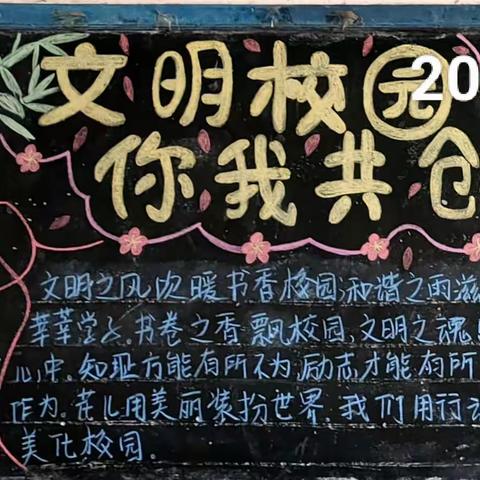 文明校园
20
你我共仓
文明之风吹暖书香校园,和谐之雨滋
莘莘学子.书卷之香飘校园,文明之魂
心中.知耻方能有所不为,励志才能有所
作为.花儿用美丽装扮世界.我们用行动
美化校园.